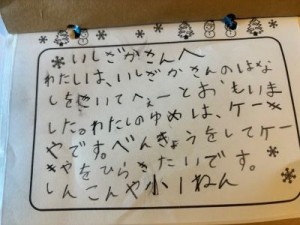 いしざかさんへ
わたしは、いしざかさんのはな
しをきいてへぇーとおもいま
した。わたしのゆめは、ケーキ
やです。べんきょうをしてケー
きやをひらきたいです。
しんこんや小1ねん